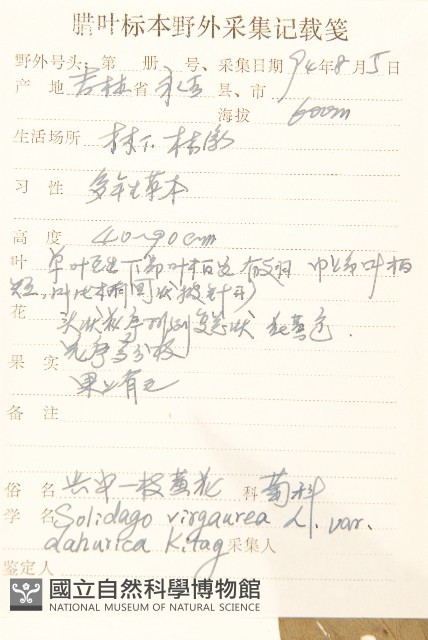 腊叶标本野外采集记载笺
野外号头：第 册 号、采集日期 94年8月5日
产 地 吉林省 永吉 县、市
海拔 600m
生活场所 林下 林缘
习 性 多年生草本
高 度 40~90cm
叶 单叶互生 下部叶柄 有 中上部叶柄
短，
花 头状花序 总状 黄色.
果 实
果 有毛
备 注
俗 名 兴安一枝黄花 科 菊科
学 名 Solidago virgaurea L. var.
dahurica Kitag 采集人
鉴定人
國立自然科學博物館
NATIONAL MUSEUM OF NATURAL SCIENCE